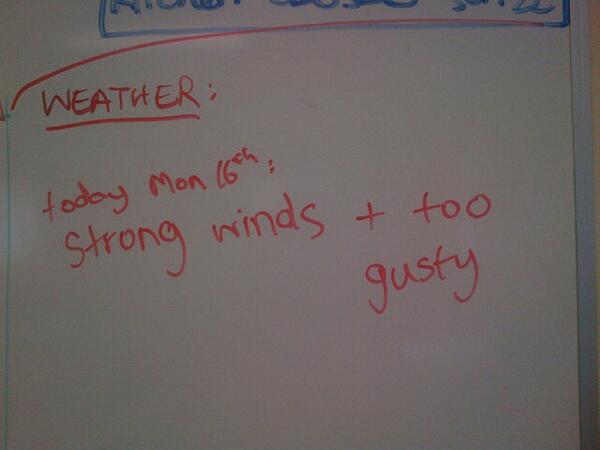 WEATHER:
today Mon 16th:
strong winds + too
gusty